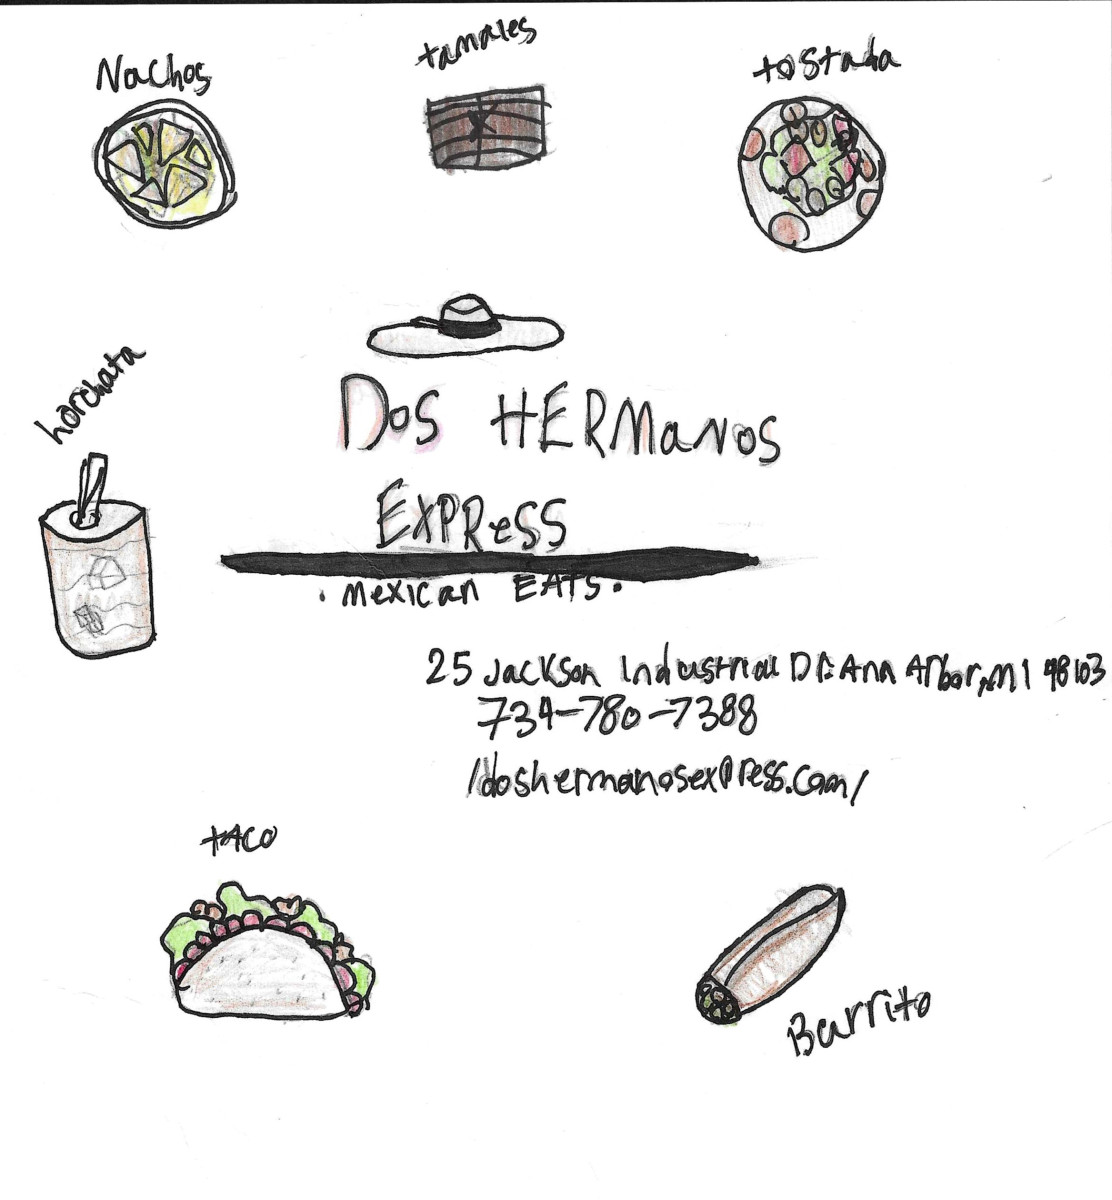 Nachos
tamales
tostada
horchata
Dos HERManos
EXPRess
. mexican EATS.
25 Jackson Industrial Dr. Ann Arbor, MI 48103
734-780-7388
/doshermanosexpress.com/
tAco
Burrito